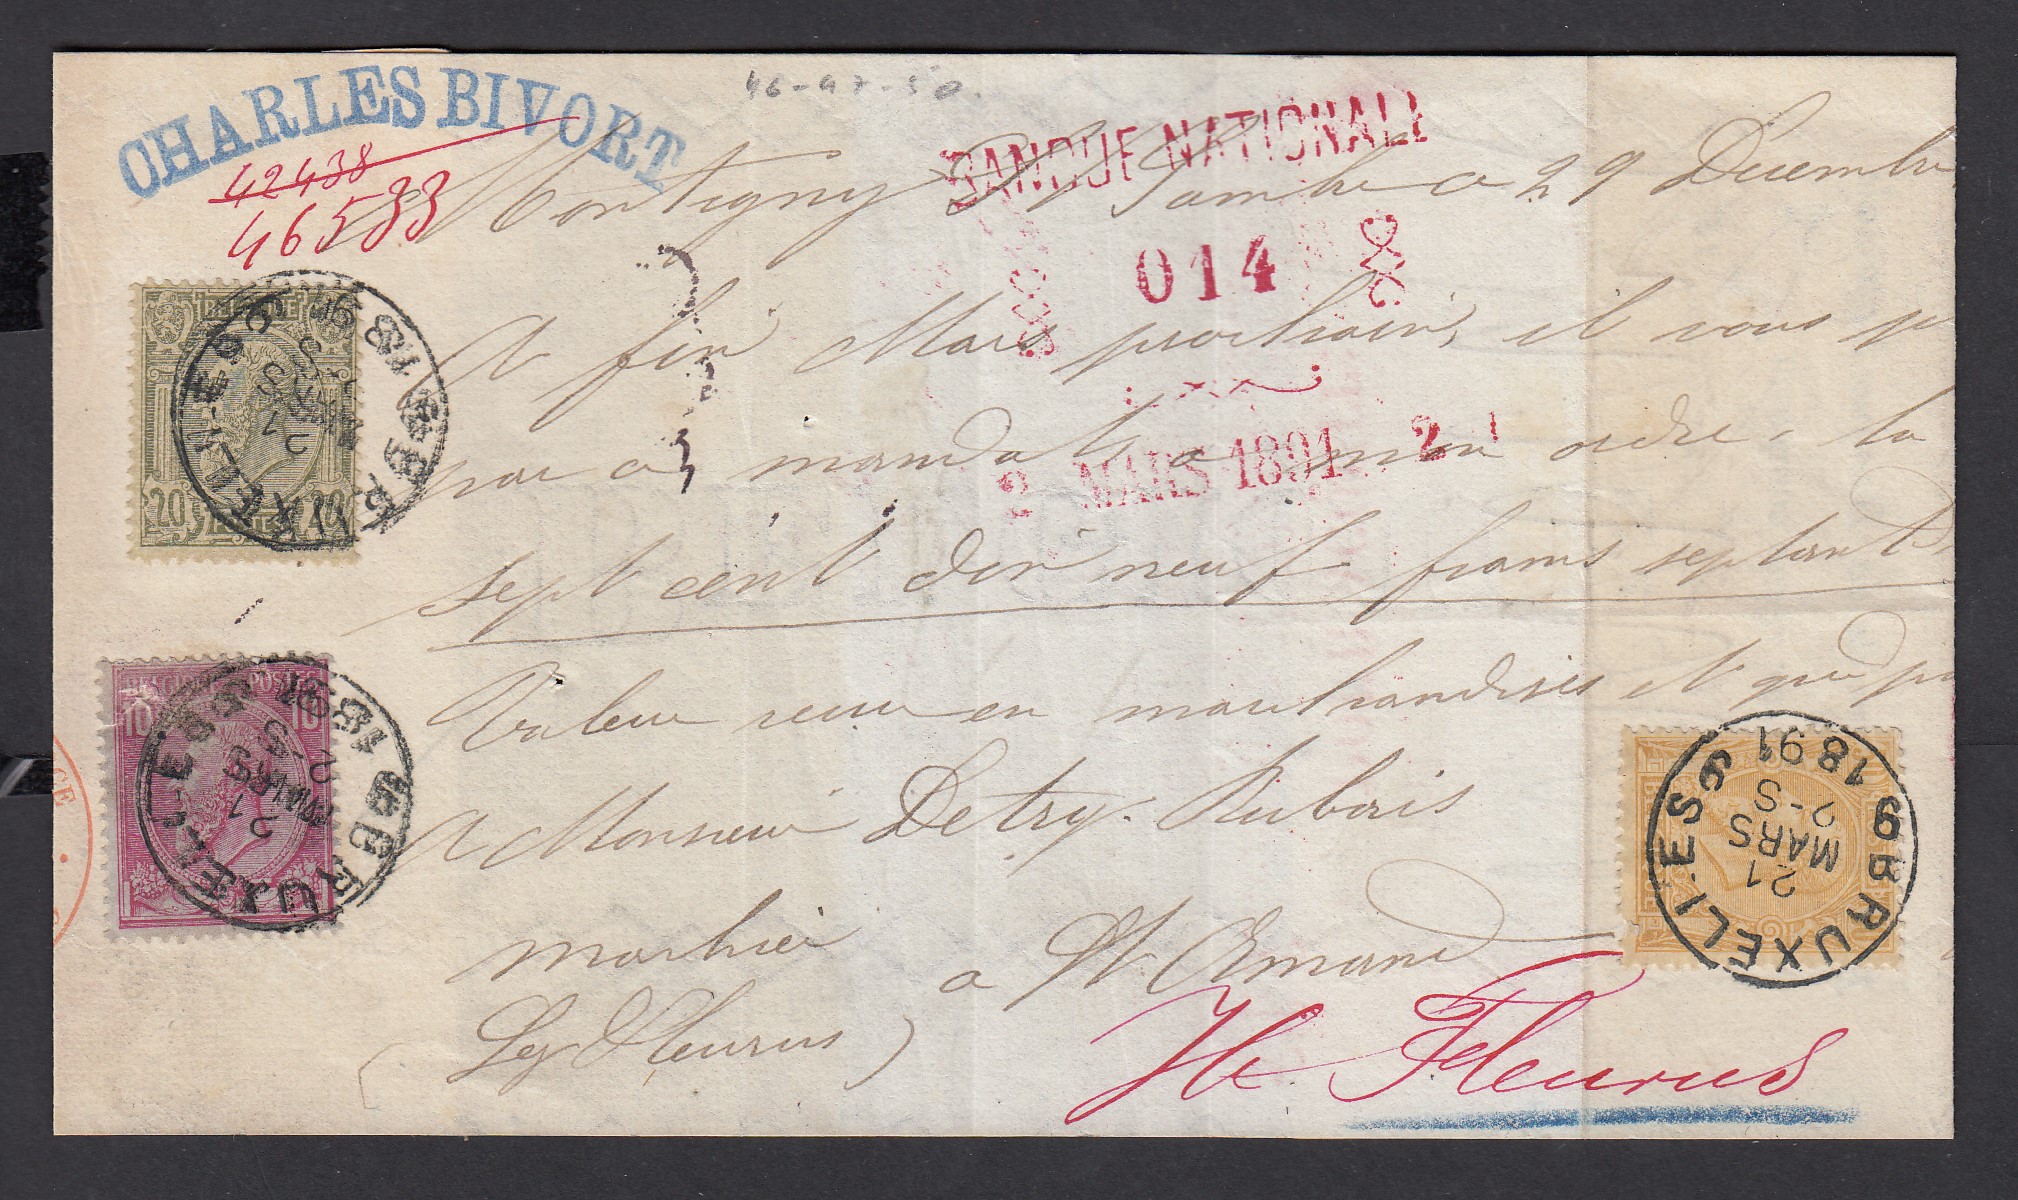 46-47-50.
CHARLES BIVORT
42438
46533
BANQUE NATIONALE
014
2 MARS 1891 2 1
Montigny S/ Sambre 29 Décembre
A fin Mars prochain, il vous p
par ce mandat à mon ordre, la
sept cent dix neuf francs septante
Valeur reçue en marchandises et que p
A Monsieur Detry-Dubois
à St Amand
(Lez Fleurus)
Hr Fleurus
BELGIQUE
20 20
POSTES
BRUXELLES 6
21
MARS
2-S
1891
POSTES
10 10
BRUXELLES 6
21
MARS
2-S
1891
BRUXELLES 6
21
MARS
2-S
1891
CE